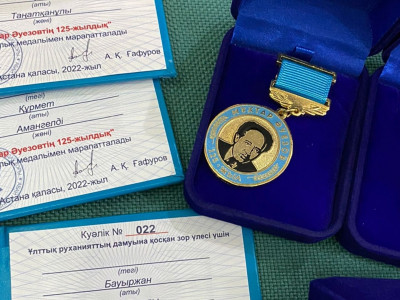 (тегі)
Танатқанұлы
(аты)
Әуезовтің 125-жылдық"
лық медалымен марапатталады
А. Қ. Гафуров
Астана қаласы, 2022-жыл
(тегі)
Құрмет
(аты)
Амангелді
ар Әуезовтің 125-жылдық"
медалымен марапатталады
А. Қ. Гафуров
Астана қаласы, 2022-жыл
Куәлік № 022
Ұлттық руханияттың дамуына қосқан зор үлесі үшін
(тегі)
Бауыржан
(аты)